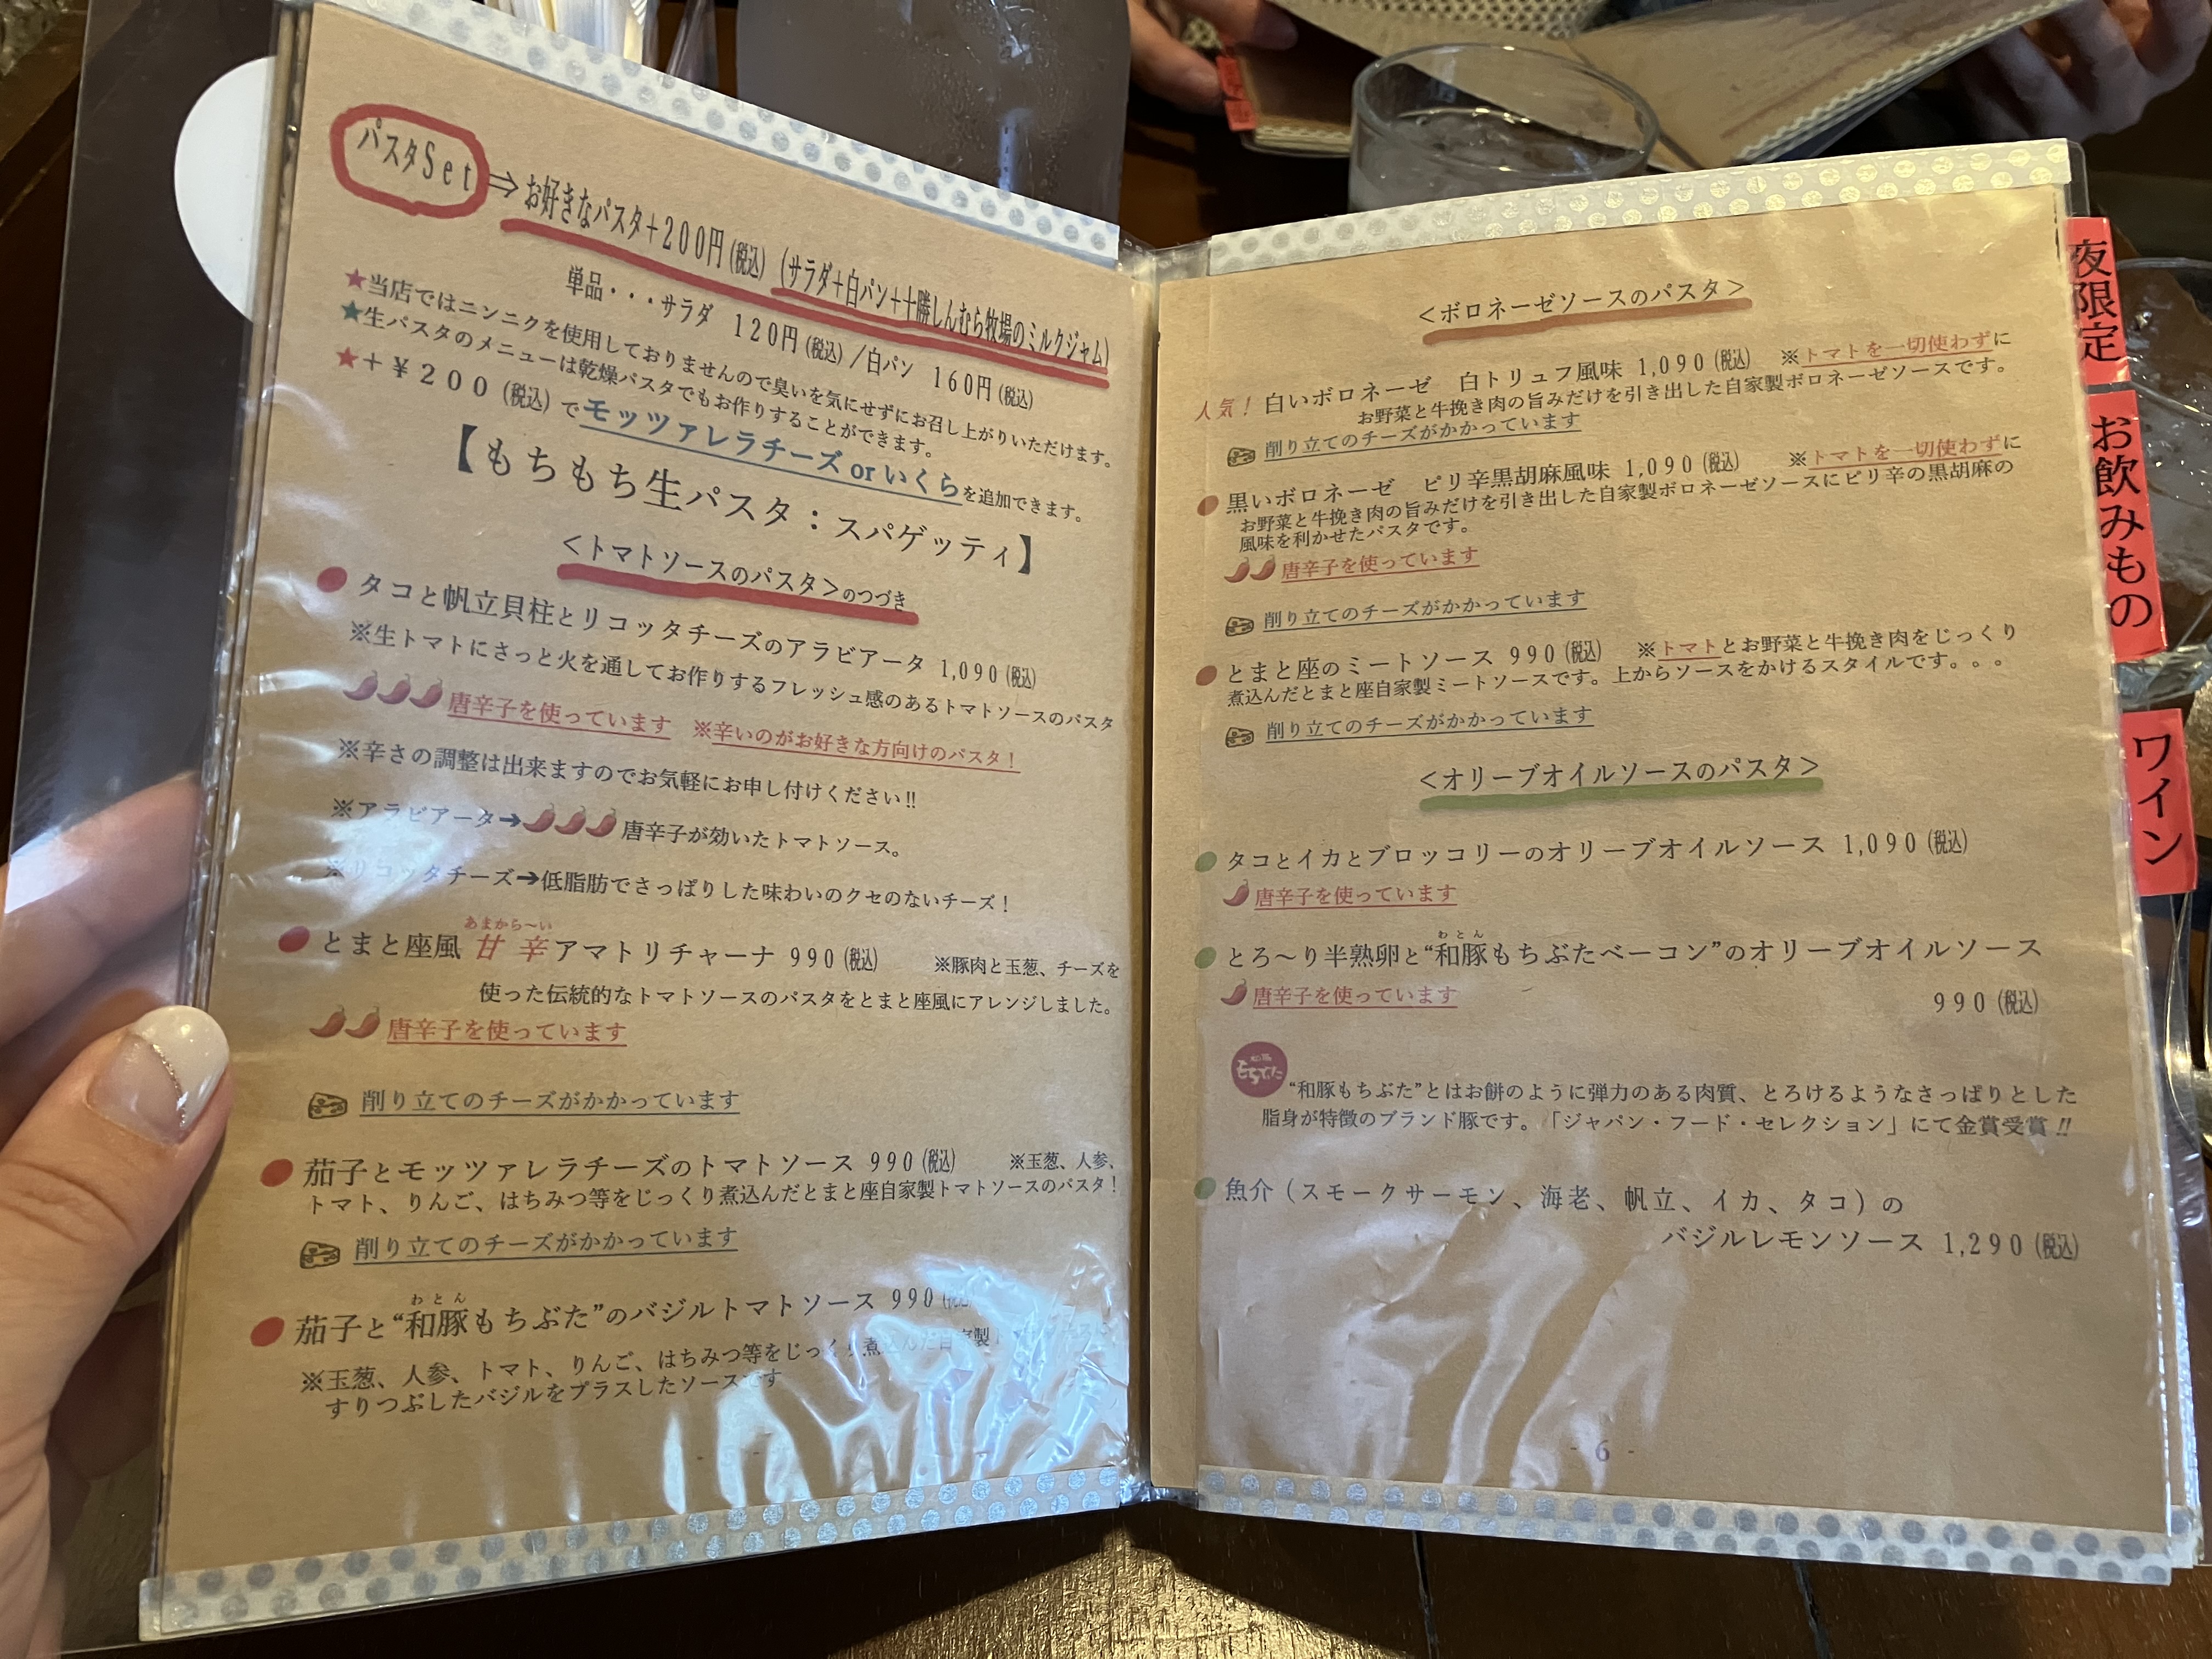 パスタSet⇒お好きなパスタ+200円(税込)(サラダ+白パン+十勝しんむら牧場のミルクジャム)
単品・・・サラダ 120円(税込)/白パン 160円(税込)
★当店ではニンニクを使用しておりませんので臭いを気にせずにお召し上がりいただけます。
★生パスタのメニューは乾燥パスタでもお作りすることができます。
★+¥200(税込)でモッツァレラチーズorいくらを追加できます。
【もちもち生パスタ:スパゲッティ】
<トマトソースのパスタ>のつづき
●タコと帆立貝柱とリコッタチーズのアラビアータ 1,090(税込)
※生トマトにさっと火を通してお作りするフレッシュ感のあるトマトソースのパスタ
唐辛子を使っています ※辛いのがお好きな方向けのパスタ!
※辛さの調整は出来ますのでお気軽にお申し付けください!!
※アラビアータ➔唐辛子が効いたトマトソース。
※リコッタチーズ➔低脂肪でさっぱりした味わいのクセのないチーズ!
あまから〜い
●とまと座風 甘辛アマトリチャーナ 990(税込) ※豚肉と玉葱、チーズを
使った伝統的なトマトソースのパスタをとまと座風にアレンジしました。
唐辛子を使っています
削り立てのチーズがかかっています
●茄子とモッツァレラチーズのトマトソース 990(税込) ※玉葱、人参、
トマト、りんご、はちみつ等をじっくり煮込んだとまと座自家製トマトソースのパスタ!
削り立てのチーズがかかっています
わとん
●茄子と“和豚もちぶた”のバジルトマトソース 990(税込)
※玉葱、人参、トマト、りんご、はちみつ等をじっくり煮込んだ自家製
すりつぶしたバジルをプラスしたソースです
<ボロネーゼソースのパスタ>
人気!白いボロネーゼ 白トリュフ風味 1,090(税込) ※トマトを一切使わずに
お野菜と牛挽き肉の旨みだけを引き出した自家製ボロネーゼソースです。
削り立てのチーズがかかっています
●黒いボロネーゼ ピリ辛黒胡麻風味 1,090(税込) ※トマトを一切使わずに
お野菜と牛挽き肉の旨みだけを引き出した自家製ボロネーゼソースにピリ辛の黒胡麻の
風味を利かせたパスタです。
唐辛子を使っています
削り立てのチーズがかかっています
●とまと座のミートソース 990(税込) ※トマトとお野菜と牛挽き肉をじっくり
煮込んだとまと座自家製ミートソースです。上からソースをかけるスタイルです。。。
削り立てのチーズがかかっています
<オリーブオイルソースのパスタ>
●タコとイカとブロッコリーのオリーブオイルソース 1,090(税込)
唐辛子を使っています
わとん
●とろ〜り半熟卵と“和豚もちぶたベーコン”のオリーブオイルソース
唐辛子を使っています
990(税込)
和豚
もちぶた
“和豚もちぶた”とはお餅のように弾力のある肉質、とろけるようなさっぱりとした
脂身が特徴のブランド豚です。「ジャパン・フード・セレクション」にて金賞受賞!!
●魚介(スモークサーモン、海老、帆立、イカ、タコ)の
バジルレモンソース 1,290(税込)
- 6 -
夜限定
お飲みもの
ワイン